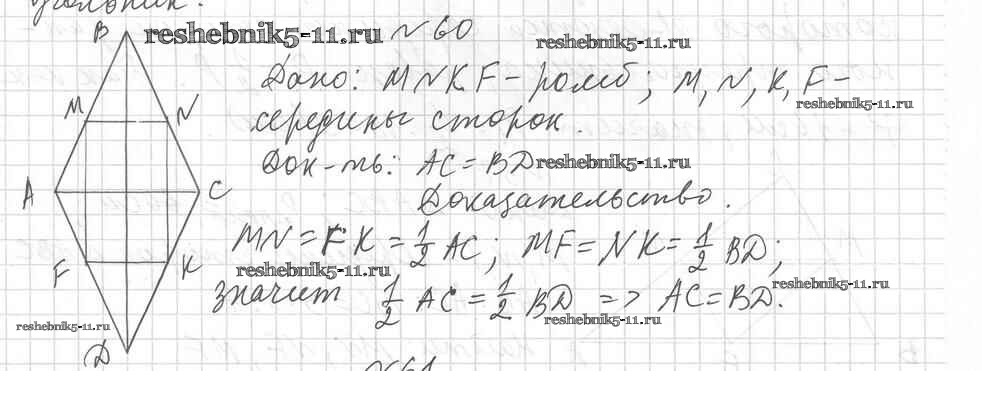 угольник.
B reshebnik5-11.ru №60 reshebnik5-11.ru
Дано: MNKF - ромб; M, N, K, F -
reshebnik5-11.ru
M N середины сторон.
Док-ть: AC = BD reshebnik5-11.ru
A C Доказательство.
MN = FK = 1/2 AC; MF = NK = 1/2 BD;
F K reshebnik5-11.ru reshebnik5-11.ru
значит 1/2 AC = 1/2 BD => AC = BD.
reshebnik5-11.ru reshebnik5-11.ru
D №61